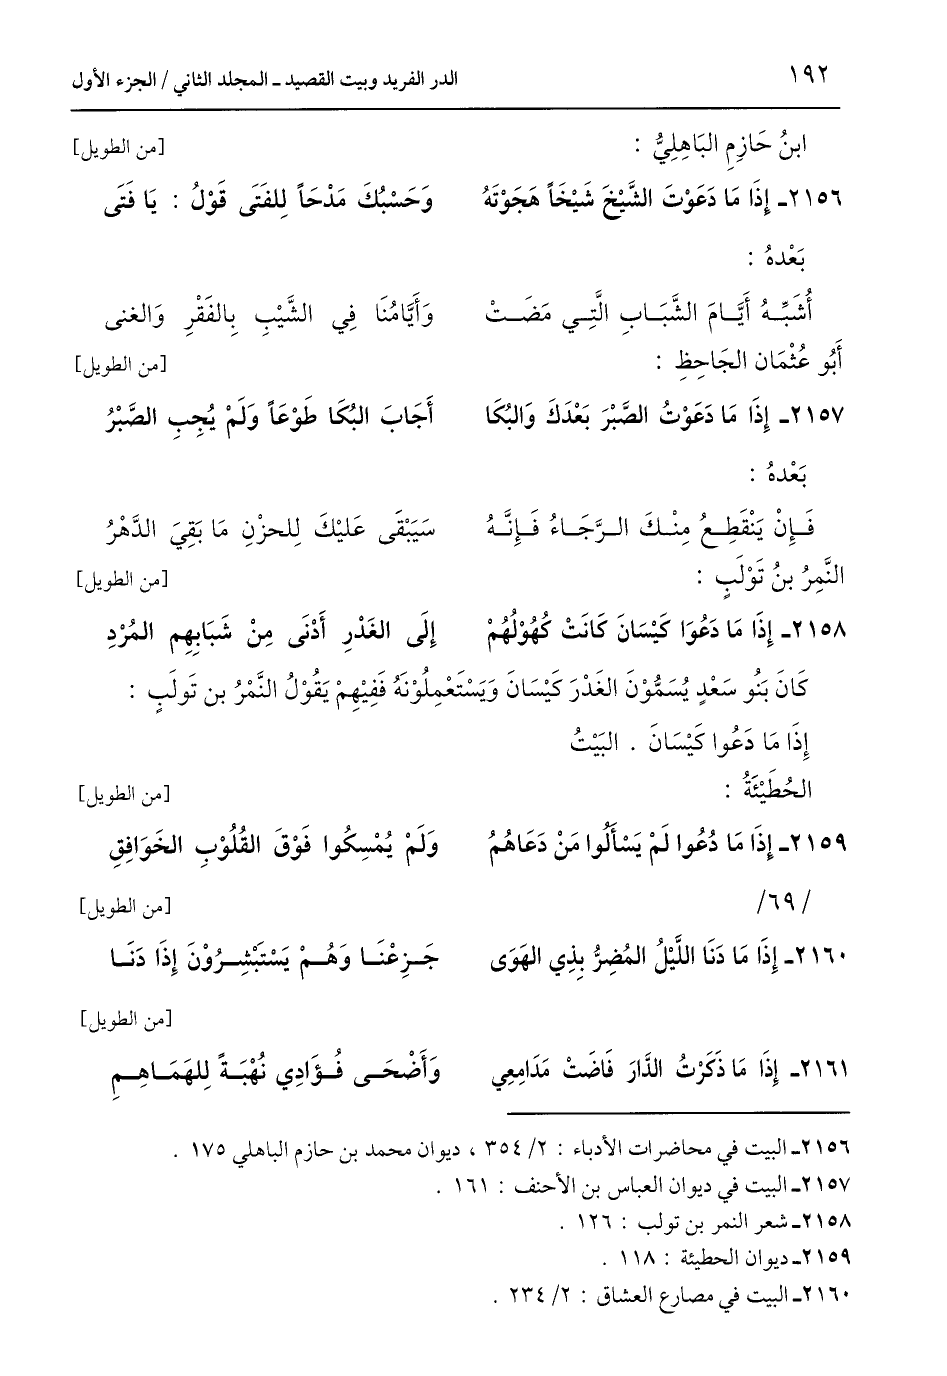 ١٩٢ الدر الفريد وبيت القصيد ـ المجلد الثاني / الجزء الأول
ابنُ حَازِمٍ البَاهِلِيُّ : [من الطويل]
٢١٥٦ـ إِذَا مَا دَعَوْتَ الشَّيْخَ شَيْخَاً هَجَوْتَهُ وَحَسْبُكَ مَدْحَاً لِلفَتَى قَوْلُ : يَا فَتَى
بَعْدهُ :
أُشَبِّـهُ أَيَّـامَ الشَّبَـابِ الَّتِـي مَضَـتْ وَأَيَّامُنَا فِي الشَّيْبِ بِالفَقْرِ وَالغنى
أَبُو عُثْمَان الجَاحِظِ : [من الطويل]
٢١٥٧ـ إِذَا مَا دَعَوْتُ الصَّبْرَ بَعْدَكَ وَالبُكَا أَجَابَ البُكَا طَوْعَاً وَلَمْ يُجِبِ الصَّبْرُ
بَعْدهُ :
فَـإِنْ يَنْقَطِـعُ مِنْـكَ الـرَّجَـاءُ فَـإِنَّـهُ سَيَبْقَى عَلَيْكَ لِلحزْنِ مَا بَقِيَ الدَّهْرُ
النَّمِرُ بنُ تَوْلَبٍ : [من الطويل]
٢١٥٨ـ إِذَا مَا دَعُوَا كَيْسَانَ كَانَتْ كُهُوْلُهُمْ إِلَى الغَدْرِ أَدْنَى مِنْ شَبَابِهِم المُرْدِ
كَانَ بَنُو سَعْدٍ يُسَمُّوْنَ الغَدْرَ كَيْسَانَ وَيَسْتَعْمِلُوْنَهُ فَفِيْهِمْ يَقُوْلُ النَّمْرُ بن تَولَبٍ :
إِذَا مَا دَعُوا كَيْسَانَ . البَيْتُ
الحُطَيْئَةُ : [من الطويل]
٢١٥٩ـ إِذَا مَا دُعُوا لَمْ يَسْأَلُوا مَنْ دَعَاهُمُ وَلَمْ يُمْسِكُوا فَوْقَ القُلُوْبِ الخَوَافِقِ
/٦٩/ [من الطويل]
٢١٦٠ـ إِذَا مَا دَنَا اللَّيْلُ المُضِرُّ بِذِي الهَوَى جَـزِعْنَـا وَهُـمْ يَسْتَبْشِـرُوْنَ إِذَا دَنَـا
[من الطويل]
٢١٦١ـ إِذَا مَا ذَكَرْتُ الدَّارَ فَاضَتْ مَدَامِعِي وَأَضْحَـى فُـؤَادِي نُهْبَـةً لِلهَمَـاهِـمِ
٢١٥٦ـ البيت في محاضرات الأدباء : ٢/ ٣٥٤ ، ديوان محمد بن حازم الباهلي ١٧٥ .
٢١٥٧ـ البيت في ديوان العباس بن الأحنف : ١٦١ .
٢١٥٨ـ شعر النمر بن تولب : ١٢٦ .
٢١٥٩ـ ديوان الحطيئة : ١١٨ .
٢١٦٠ـ البيت في مصارع العشاق : ٢/ ٢٣٤ .